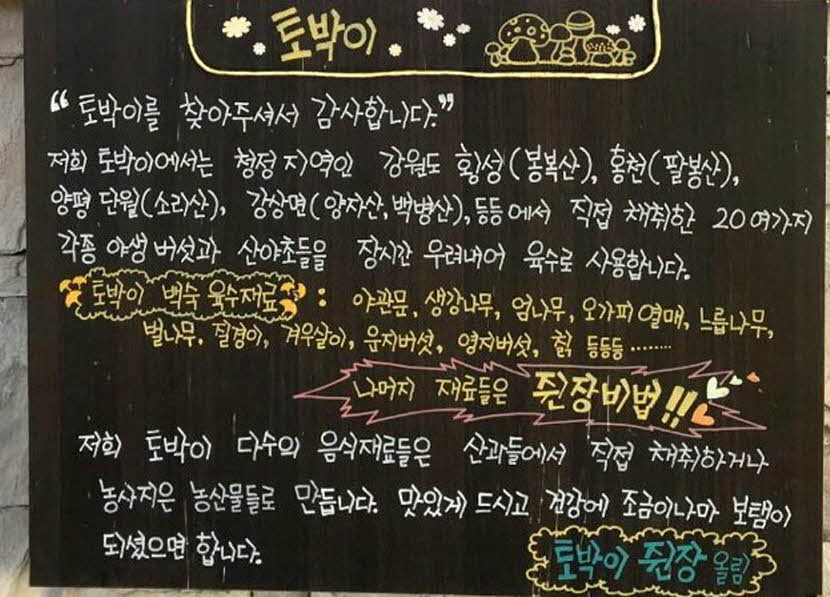 토박이
“토박이를 찾아주셔서 감사합니다.”
저희 토박이에서는 청정지역인 강원도 횡성(봉복산), 홍천(팔봉산),
양평 단월(소리산), 강상면(양자산,백병산),등등에서 직접 채취한 20여가지
각종 야생버섯과 산야초들을 장시간 우려내어 육수로 사용합니다.
토박이 백숙 육수재료 : 야관문, 생강나무, 엄나무, 오가피열매, 느릅나무,
벌나무, 질경이, 겨우살이, 운지버섯, 영지버섯, 칡 등등등 ........
나머지 재료들은 쥔장비법!!
저희 토박이 다수의 음식재료들은 산과들에서 직접 채취하거나
농사지은 농산물들로 만듭니다. 맛있게 드시고 건강에 조금이나마 보탬이
되셨으면 합니다.
토박이 쥔장 올림